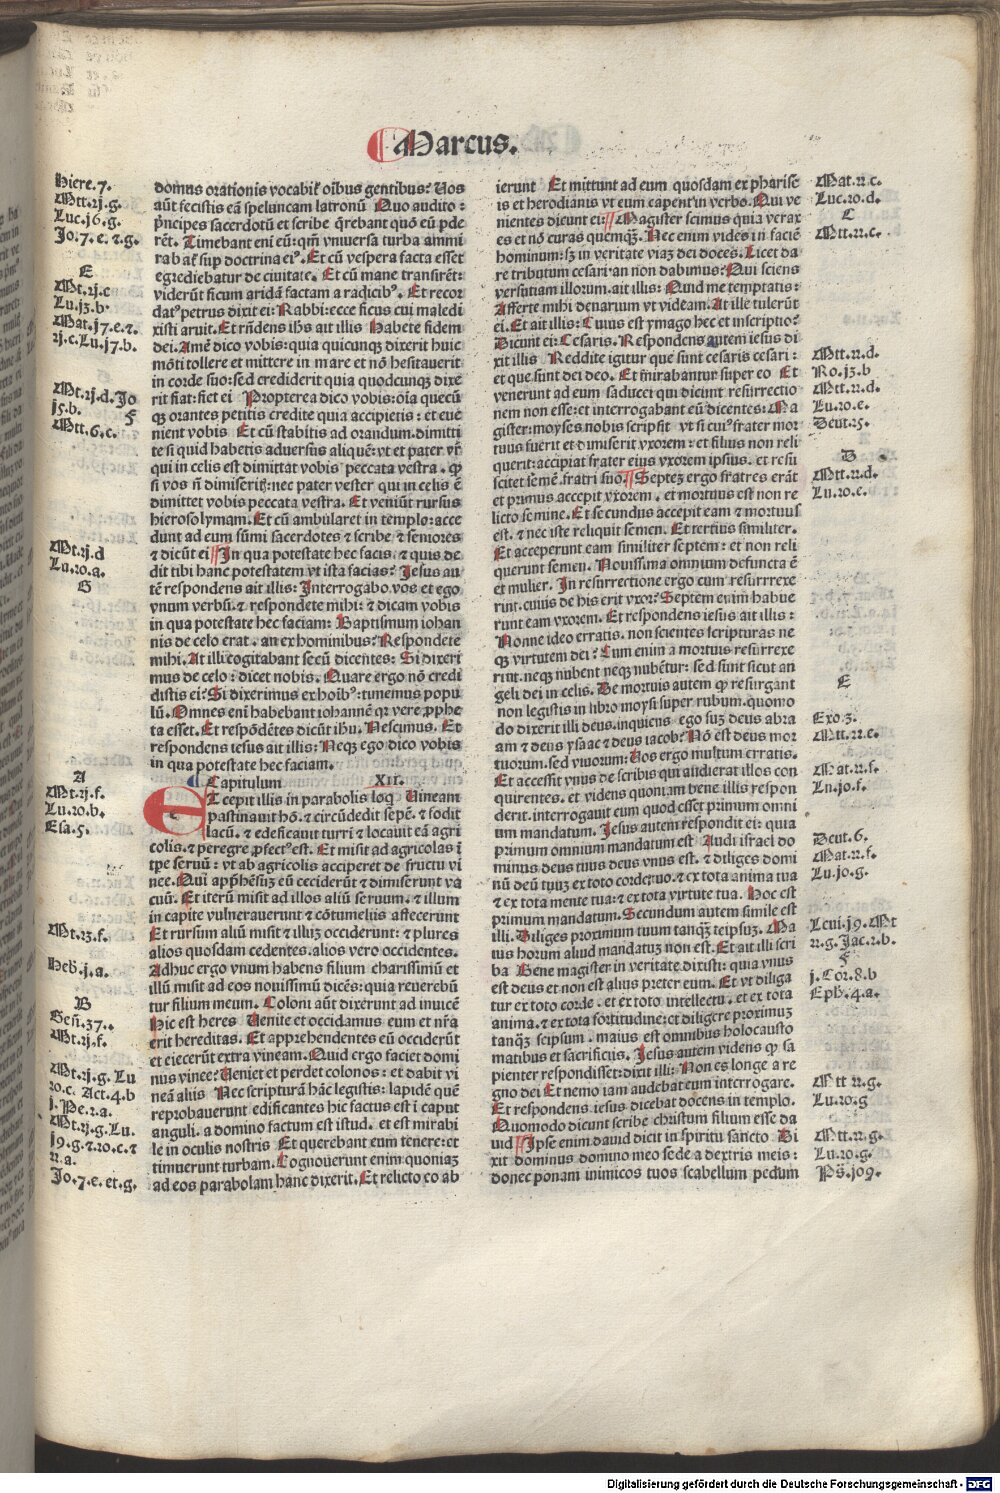 Marcus.
Hiere.7.
Mtt.rj.g.
Luc.j6.g.
Jo.7.e.r.g.
E
Mt.rj.c
Lu.j3.b.
Mat.j7.e.r.
rj.c.Lu.j7.b.
Mt.rj.d.Jo
j5.b. F
Mtt.6.c.
Mt.rj.d
Lu.ro.a.
G
A
Mt.rj.f.
Lu.ro.b.
Esa.5.
Mt.r3.f.
Heb.j.a.
B
Gen̄.37..
Mt.rj.f.
Mt.rj.g. Lu
ro.c. Act.4.b
j.Pe.r.a.
Mt.rj.g.Lu.
j9.g.r.ro.c.r
rr.a.
Jo.7.e.et.g.
domus orationis vocabit̉ oībus gentibus? Uos
aūt fecistis eā speluncam latronū Quo audito:
pͥncipes sacerdotū et scribe q̄rebant quō eū pde
rēt. Timebant eni eū: qm̄ vniuersa turba ammi
rabat̉ sup doctrina eiꝰ. Et cū vespera facta esset
egrediebatur de ciuitate. Et cū mane transirēt:
viderūt ficum aridā factam a radicibꝰ. Et recor
datꝰ petrus dixit ei: Rabbi: ecce ficus cui maledi
xisti aruit. Et rn̄dens ih̄s ait illis Habete fidem
dei. Amē dico vobis: quia quicunqꝫ dixerit huic
mōti tollere et mittere in mare et nō hesitauerit
in corde suo: sed crediderit quia quodcunqꝫ dixe
rit fiat: fiet ei Propterea dico vobis: oīa quecū
qꝫ orantes petitis credite quia accipietis: et eue
nient vobis Et cū stabitis ad orandum. dimitti
te si quid habetis aduersus aliquē: vt et pater vr̄
qui in celis est dimittat vobis peccata vestra. Qꝫ
si vos n̄ dimiseritꝭ: nec pater vester qui in celis ē
dimittet vobis peccata vestra. Et veniūt rursus
hierosolymam. Et cū ambularet in templo: acce
dunt ad eum sūmi sacerdotes ⁊ scribe ⁊ seniores
⁊ dicūt ei In qua potestate hec facis: ⁊ quis de
dit tibi hanc potestatem vt ista facias? Jesus au
tē respondens ait illis: Interrogabo vos et ego
vnum verbū. ⁊ respondete mihi: ⁊ dicam vobis
in qua potestate hec faciam: Baptismum iohan
nis de celo erat. an ex hominibus? Respondete
mihi. At illi cogitabant secū dicentes: Si dixeri
mus de celo: dicet nobis. Quare ergo nō credi
distis ei? Si dixerimus ex hoībꝰ: timemus popu
lū. Omnes eni habebant iohannē qꝛ vere ꝓphe
ta esset. Et respōdētes dicūt ihu. Nescimus. Et
respondens iesus ait illis: Neqꝫ ego dico vobis
in qua potestate hec faciam.
Capitulum XII.
ET cepit illis in parabolis loq̄ Uineam
pastinauit hō. ⁊ circūdedit sepē. ⁊ fodit
lacū. ⁊ edeficauit turri ⁊ locauit eā agri
colis. ⁊ peregre ꝓfectꝰ est. Et misit ad agricolas i
tpe seruū: vt ab agricolis acciperet de fructu vi
nee. Qui app̄hēsuꝫ eū ceciderūt ⁊ dimiserunt va
cuū. Et iterū misit ad illos aliū seruum. ⁊ illum
in capite vulnerauerunt ⁊ cōtumelijs affecerunt
Et rursum aliū misit ⁊ illuꝫ occiderunt: ⁊ plures
alios quosdam cedentes. alios vero occidentes.
Adhuc ergo vnum habens filium charissimū et
illū misit ad eos nouissimū dicēs: quia reuerebū
tur filium meum. Coloni aūt dixerunt ad inuicē
Hic est heres Uenite et occidamus eum et nr̄a
erit hereditas. Et apprehendentes eū occiderūt
et eiecerūt extra vineam. Quid ergo faciet domi
nus vinee? Ueniet et perdet colonos: et dabit vi
neā alijs Nec scripturā hāc legistis: lapidē quē
reprobauerunt edificantes hic factus est i caput
anguli. a domino factum est istud. et est mirabi
le in oculis nostris Et querebant eum tenere: et
timuerunt turbam. Cognouerunt enim quoniaꝫ
ad eos parabolam hanc dixerit. Et relicto eo ab
ierunt Et mittunt ad eum quosdam ex pharise
is et herodianis vt eum caperent in verbo. Qui ve
nientes dicunt ei: Magister scimus quia verax
es et nō curas quemqꝫ. Nec enim vides in faciē
hominum: sꝫ in veritate viaꝫ dei doces. Licet da
re tributum cesari an non dabimus? Qui sciens
versutiam illorum. ait illis: Quid me temptatis:
Afferte mihi denarium vt videam. At ille tulerūt
ei. Et ait illis: Cuius est ymago hec et inscriptio?
Dicunt ei: Cesaris. Respondens autem iesus di
xit illis Reddite igitur que sunt cesaris cesari:
et que sunt dei deo. Et m̄irabantur super eo Et
venerunt ad eum saducei qui dicunt resurrectio
nem non esse: et interrogabant eū dicentes: Ma
gister: moyses nobis scripsit vt si cuiꝰ frater mor
tuus fuerit et dimiserit vxorem: et filius non reli
querit: accipiat frater eius vxorem ipsius. et resu
scitet semē. fratri suo. Septeꝫ ergo fratres erāt
et primus accepit vxorem. et mortuus est non re
licto semine. Et secundus accepit eam ⁊ mortuus
est. ⁊ nec iste reliquit semen. Et tertius similiter.
Et acceperunt eam similiter septem: et non reli
querunt semen. Nouissima omnium defuncta ē
et mulier. In resurrectione ergo cum resurrexe
rint. cuius de his erit vxor? Septem enim habue
runt eam vxorem. Et respondens iesus ait illis:
Nonne ideo erratis. non scientes scripturas ne
qꝫ virtutem dei? Cum enim a mortuis resurrexe
rint. neqꝫ nubent neqꝫ nubētur: sed sunt sicut an
geli dei in celis. De mortuis autem qꝫ resurgant
non legistis in libro moysi super rubum. quomo
do dixerit illi deus. inquiens ego suꝫ deus abra
am ⁊ deus ysaac ⁊ deus iacob? Nō est deus mor
tuorum. sed viuorum: Uos ergo multum erratis.
Et accessit vnus de scribis qui audierat illos con
quirentes. et videns quoniam bene illis respon
derit. interrogauit eum quod esset primum omni
um mandatum. Jesus autem respondit ei: quia
primum omnium mandatum est Audi israel do
minus deus tuus deus vnus est. ⁊ diliges domi
nū deū tuuꝫ ex toto corde tuo. ⁊ ex tota anima tua
⁊ ex tota mente tua: ⁊ ex tota virtute tua. Hoc est
primum mandatum. Secundum autem simile est
illi. Diliges proximum tuum tanqꝫ teipsuꝫ. Ma
ius horum aliud mandatuꝫ non est. Et ait illi scri
ba Bene magister in veritate dixisti: quia vnus
est deus et non est alius preter eum. Et vt diliga
tur ex toto corde. et ex toto intellectu. et ex tota
anima. ⁊ ex tota fortitudine: et diligere proximuꝫ
tanqꝫ seipsum. maius est omnibus holocausto
matibus et sacrificijs. Jesus autem videns qꝫ sa
pienter respondisset: dixit illi: Non es longe a re
gno dei Et nemo iam audebat eum interrogare.
Et respondens iesus dicebat docens in templo.
Quomodo dicunt scribe christum filium esse da
uid Ipse enim dauid dicit in spiritu sancto Di
xit dominus domino meo sede a dextris meis:
donec ponam inimicos tuos scabellum pedum
Mat.rr.c.
Luc.ro.d.
C
Mtt.rr.c.
Mtt.rr.d.
Ro.j3.b
Mtt.rr.d.
Lu.ro.e.
Deut.r5.
D
Mtt.rr.d.
Lu.ro.e.
E
Exo.3.
Mtt.rr.e.
Mat.rr.f.
Lu.jo.f.
Deut.6.
Mat.rr.f.
Lu.jo.g.
Leui.j9.Mt
rr.g.Jac.r.b.
F
j.Cor.8.b
Eph.4.a.
Mtt rr.g.
Lu.ro.g
Mtt.rr.g.
Lu.ro.g.
Ps̄.jo9.
Digitalisierung gefördert durch die Deutsche Forschungsgemeinschaft - DFG